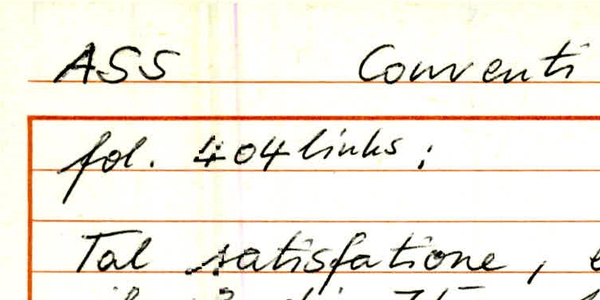 ASS Conventi
fol. 404 links;
Tal satisfatione,